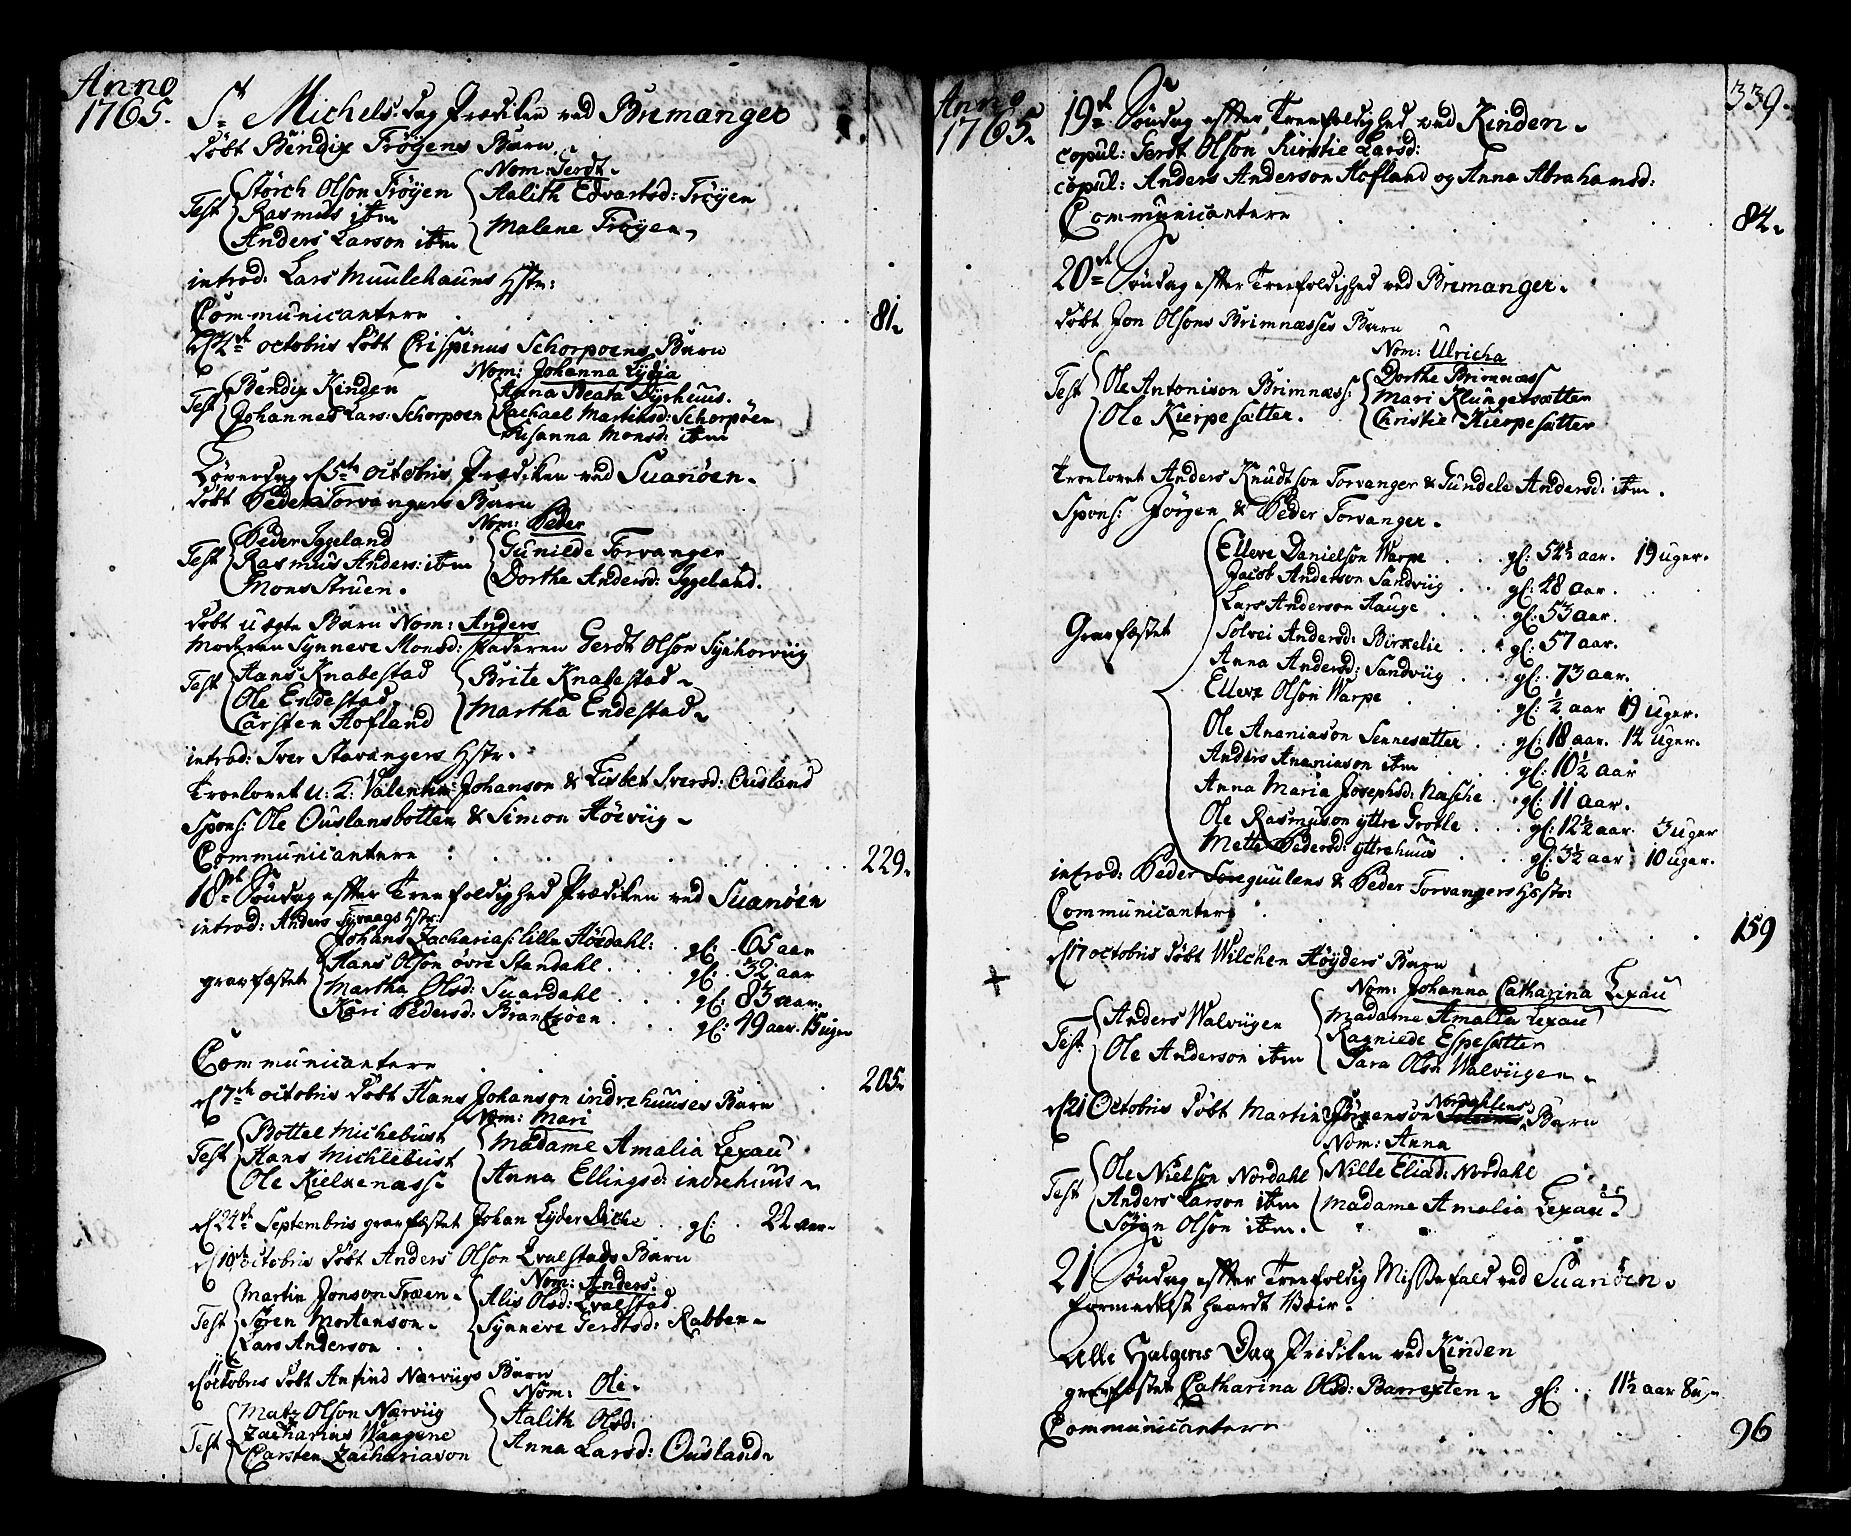 Anno
1765.
St Michels dag Prædiken ved Bremanger
døbt Bendix Frøyens Barn
Nom: Gerdt.
Test Störch Olson Frøyen
Rasmus itm
Anders Larson itm
Aalith Edvartsd: Frøyen
Malene Frøyen
introd: Lars Muulehauns Hstr:
Communicantere 81
d 4de octobris døbt Crispinus Schorpoens Barn
Nom: Johanna Lydia
Test Bendix Kinden
Johannes Lars: Schorpoen
Anna Beata Dyrhuus.
Rachael Martinsd: Schorpöen
Susanna Monsd: itm
Löverdag d 5te octobris Prædiken ved Suanöen
døbt Peder Torvangers Barn
Nom: Peder
Test Peder Iggeland
Rasmus Anders: itm
Mons Struen.
Gunilde Torvanger
Dorthe Andersd: Iggeland.
døbt uægte Barn Nom: Anders
Moderen Synneve Monsd: Faderen Gerdt Olson
Test Hans Knabestad
Ole Endestad
Carsten Hofland
Brite Knabestad
Martha Endestad
introd: Iver Stavangers Hstr.
Troelovet u: K: Valentin Johanson & Lisbet Iversd: Ousland
Spons: Ole Ouslansbotten & Simon Höeviig
Communicantere 229
18de Söndag effter Treefoldighed Prædiken ved Suanöen
introd: Anders Hstr:
gravfæstet Johans Zacharias: lille Höedahl: gl: 65 aar
Hans Olson övre Standahl gl: 32 aar
Martha Olsd: Suardahl gl: 83 aar.
Kari Pedersd: Brandsöen gl: 49 aar. 15 uger
Communicantere 205
d 7de octobris døbt Hans Johanson indrehuuses Barn
Nom: Mari
Test Bottel Michebust
Hans Michlebust
Ole Kielkenæss
Madame Amalia Lexau
Anna Ellingsd: indrehuus
d 24de Septembris gravfæstet Johan Lyder Diche gl: 22 aar
d 10de octobris døbt Anders Olson Qvalstads Barn
Nom: Anders:
Test Martin Jonson Træen
Sören Mortenson
Lars Anderson
Alis Olsd: Qvalstad
Synneve Gerdtsd: Rabben
d 11te octobris døbt Anfind Nærviigs Barn
Nom: Ole.
Test Matz Olson Nærviig
Zacharias Waagene
Carsten Zachariason
Aalith Olsd:
Anna Larsd: Ousland
Anno
1765.
339.
19de Söndag effter Treefoldighed ved Kinden
copul: Gerdt Olson Kirstie Larsd:
copul: Anders Anderson Hofland og Anna Abrahamsd:
Communicantere 84
20de Söndag effter Treefoldighed ved Bremanger
døbt Jon Olsons Brimnæsses Barn
Nom: Ulricha
Test Ole Antonison Brimnæss:
Ole Kierpesætter.
Dorthe Brimnæss
Mari Klungersætter
Christie Kierpesætter
Troelovet Anders Knudtson Torvanger & Gundele Andersd: itm.
Spons: Jörgen & Peder Torvanger.
Gravfæstet
Elleve Danielson Warpe gl: 54½ aar. 19 uger.
Jacob Anderson Sandviig gl: 48 aar.
Lars Anderson Hauge gl: 53 aar.
Solvei Andersd: Birkelie gl: 57 aar.
Anna Andersd: Sandviig gl: 73 aar.
Elleve Olson Warpe gl: ½ aar 19 uger.
Ole Ananiason Sennesætter gl: 18 aar. 14 uger.
Anders Ananiason itm gl: 10½ aar
Anna Maria Josephsd: Nasche gl: 11 aar.
Ole Rasmuson yttre Grotle gl: 12½ aar 3 uger
Mette Pedersd: yttrehuus gl: 3½ aar 10 uger.
introd: Peder & Peder Torvangers Hstr:
Communicantere 159
d 17 octobris døbt Wilchen Höyders Barn
Nom: Johanna Catharina Lexau
Test: Anders Walviigen
Ole Anderson itm
Madame Amalia Lexau
Ragniede Espesætter
Sara Olsd: Walviigen
d 21 Octobris døbt Martin Jörgenson Nordahlens Barn
Nom: Anna
Test Ole Nielson Nordahl
Anders Larson itm
Olson itm.
Nille Eliad: Nordahl
Madame Amalia Lexau
21 Söndag effter Treefoldig Messefald ved Suanöen
formedelst haardt Veir
Alle Helgens Dag Prædiken ved Kinden
gravfæstet Catharina Olsd: Barrexten gl: 11½ aar 8 ug
Communicantere 96